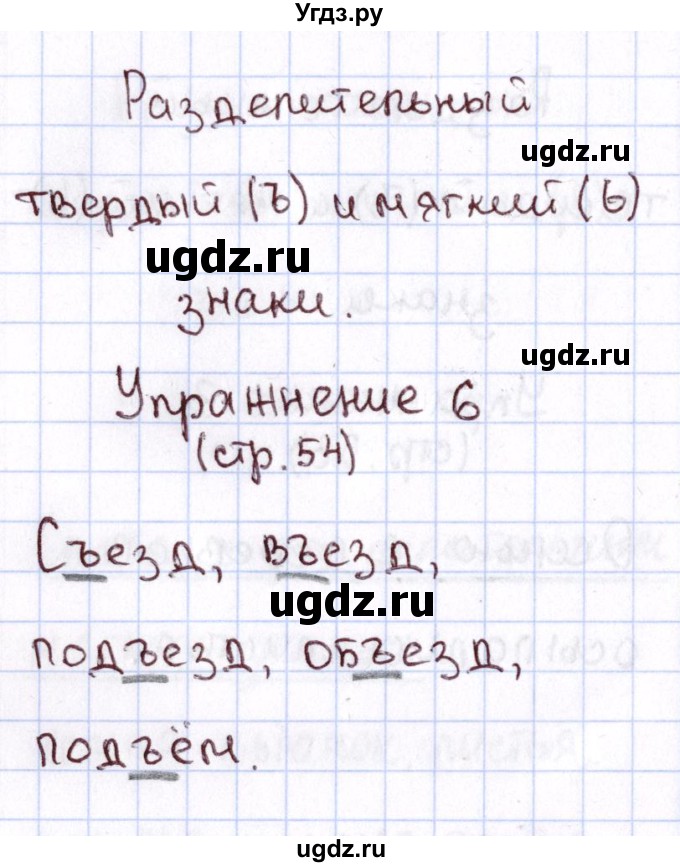 Угдз.ру
Разделительный
ugdz.ru
твердый (ъ) и мягкий (ь)
ugdz.ru
знаки.
ugdz.ru
Упражнение 6
(стр. 54)
Съезд, въезд,
ugdz.ru
подъезд, объезд,
подъём.
ugdz.ru